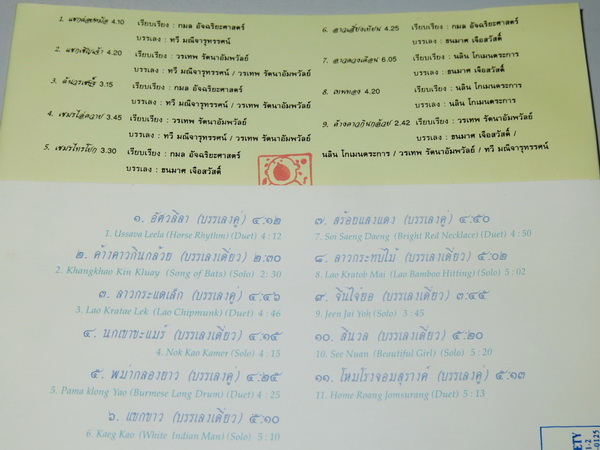 1. แขกต่อยหม้อ 4.10 เรียบเรียง : กมล อัจฉริยะศาสตร์
บรรเลง : ทวี มณีจารุทรรศน์
2. แขกเชิญเจ้า 4.20 เรียบเรียง : วรเทพ รัตนาอัมพวัลย์
บรรเลง : ทวี มณีจารุทรรศน์ / วรเทพ รัตนาอัมพวัลย์
3. ต้นวรเชษฐ์ 3.15 เรียบเรียง : กมล อัจฉริยะศาสตร์
บรรเลง : ทวี มณีจารุทรรศน์ / วรเทพ รัตนาอัมพวัลย์
4. เขมรไล่ควาย 3.45 เรียบเรียง : วรเทพ รัตนาอัมพวัลย์
บรรเลง : ทวี มณีจารุทรรศน์ / วรเทพ รัตนาอัมพวัลย์
5. เขมรไทรโยก 3.30 เรียบเรียง : กมล อัจฉริยะศาสตร์
บรรเลง : ธนมาศ เจือสวัสดิ์
6. ลาวเสี่ยงเทียน 4.25 เรียบเรียง : กมล อัจฉริยะศาสตร์
บรรเลง : ธนมาศ เจือสวัสดิ์
7. ลาวดวงเดือน 6.05 เรียบเรียง : นลิน โกเมนตระการ
บรรเลง : ธนมาศ เจือสวัสดิ์
8. เทพทอง 4.20 เรียบเรียง : นลิน โกเมนตระการ
บรรเลง : นลิน โกเมนตระการ
9. ค้างคาวกินกล้วย 2.42 เรียบเรียง : วรเทพ รัตนาอัมพวัลย์
บรรเลง : ธนมาศ เจือสวัสดิ์ /
นลิน โกเมนตระการ / วรเทพ รัตนาอัมพวัลย์ / ทวี มณีจารุทรรศน์
๑. อัศวลีลา (บรรเลงคู่) ๔.๑๒
1. Ussava Leela (Horse Rhythm) (Duet) 4 : 12
๒. ค้างคาวกินกล้วย (บรรเลงเดี่ยว) ๒.๓๐
2. Khangkhao Kin Kluay (Song of Bats) (Solo) 2 : 30
๓. ลาวกระแตเล็ก (บรรเลงคู่) ๔.๔๖
3. Lao Kratae Lek (Lao Chipmunk) (Duet) 4 : 46
๔. นกเขาขะแมร์ (บรรเลงเดี่ยว) ๔.๑๕
4. Nok Kao Kamer (Solo) 4 : 15
๕. พม่ากลองยาว (บรรเลงคู่) ๔.๒๕
5. Pama klong Yao (Burmese Long Drum) (Duet) 4 : 25
๖. แขกขาว (บรรเลงเดี่ยว) ๕.๑๐
6. Kaeg Kao (White Indian Man) (Solo) 5 : 10
๗. สร้อยแสงแดง (บรรเลงคู่) ๔.๕๐
7. Soi Saeng Daeng (Bright Red Necklace) (Duet) 4 : 50
๘. ลาวกระทบไม้ (บรรเลงเดี่ยว) ๕.๐๒
8. Lao Kratob Mai (Lao Bamboo Hitting) (Solo) 5 : 02
๙. จีนใจ๋ยอ (บรรเลงเดี่ยว) ๓.๔๕
9. Jeen Jai Yoh (Solo) 3 : 45
๑๐. สีนวล (บรรเลงเดี่ยว) ๕.๒๐
10. See Nuan (Beautiful Girl) (Solo) 5 : 20
๑๑. โหมโรงจอมสุรางค์ (บรรเลงคู่) ๕.๑๓
11. Home Roang Jomsurang (Duet) 5 : 13